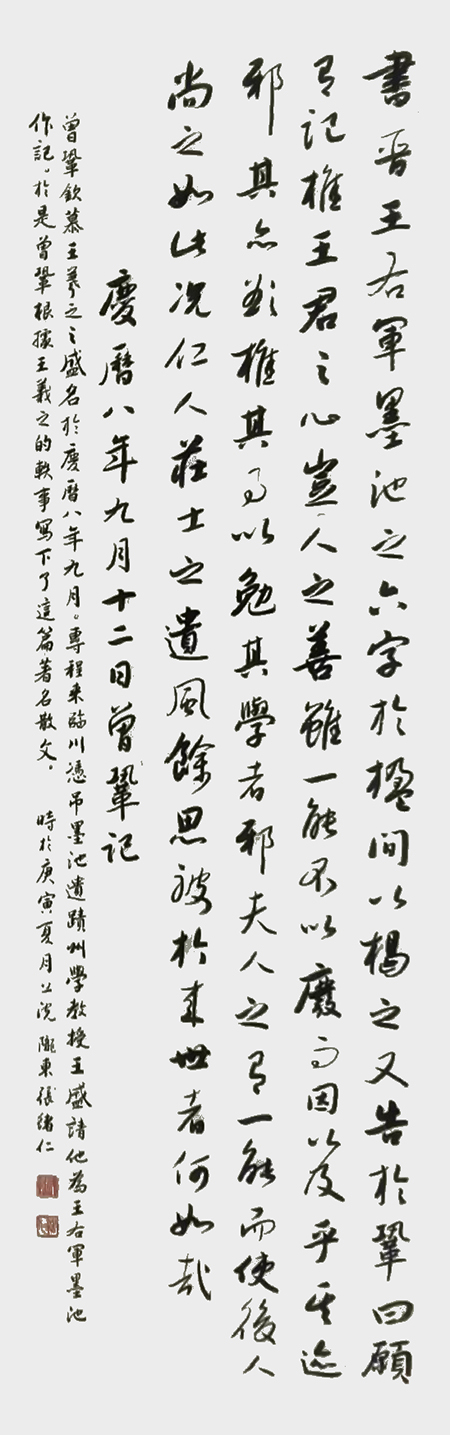 書晉王右軍墨池之六字於楹間以揭之又告於鞏曰願
有記推王君之心豈人之善雖一能不以廢而因以及乎其迹
邪其亦欲推其事以勉其學者邪夫人之有一能而使後人
尚之如此況仁人莊士之遺風餘思被於來世者何如哉
慶曆八年九月十二日曾鞏記
曾鞏欽慕王羲之之盛名於慶曆八年九月。專程來臨川憑吊墨池遺蹟州學教授王盛請他為王右軍墨池
作記。於是曾鞏根據王羲之的軼事寫下了這篇著名散文。 時於庚寅夏月 隴東張緒仁